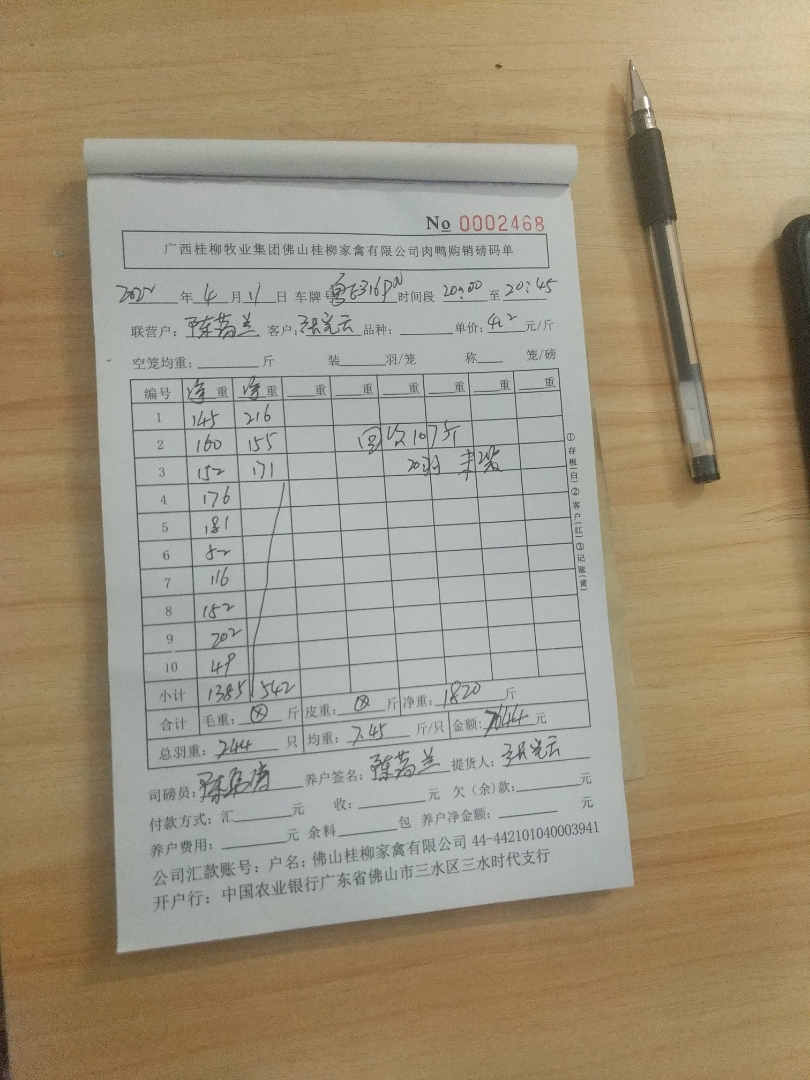 No 0002468
广西桂柳牧业集团佛山桂柳家禽有限公司肉鸭购销磅码单
2022 年 4 月 11 日 车牌号 时间段 20:00 至 20:45
联营户: 客户: 张光云 品种: 单价: 4.2 元/斤
空笼均重: 斤 装 羽/笼 称 笼/磅
编号 净重 净重 重 重 重 重 重 重
1 145 216
2 160 155 回收107斤
3 152 171 20羽 未装
4 176
5 181
6 52
7 116
8 152
9 202
10 49
小计 1385 542
合计 毛重: ⊗ 斤 皮重: ⊗ 斤 净重: 1820 斤
总羽重: 244 只 均重: 7.45 斤/只 金额: 7644 元
司磅员: 养户签名: 提货人: 张光云
付款方式: 汇 元 收: 元 欠(余)款: 元
养户费用: 元 余料 包 养户净金额: 元
公司汇款账号: 户名: 佛山桂柳家禽有限公司 44-442101040003941
开户行: 中国农业银行广东省佛山市三水区三水时代支行
①存根(白)②客户(红)③记账(黄)